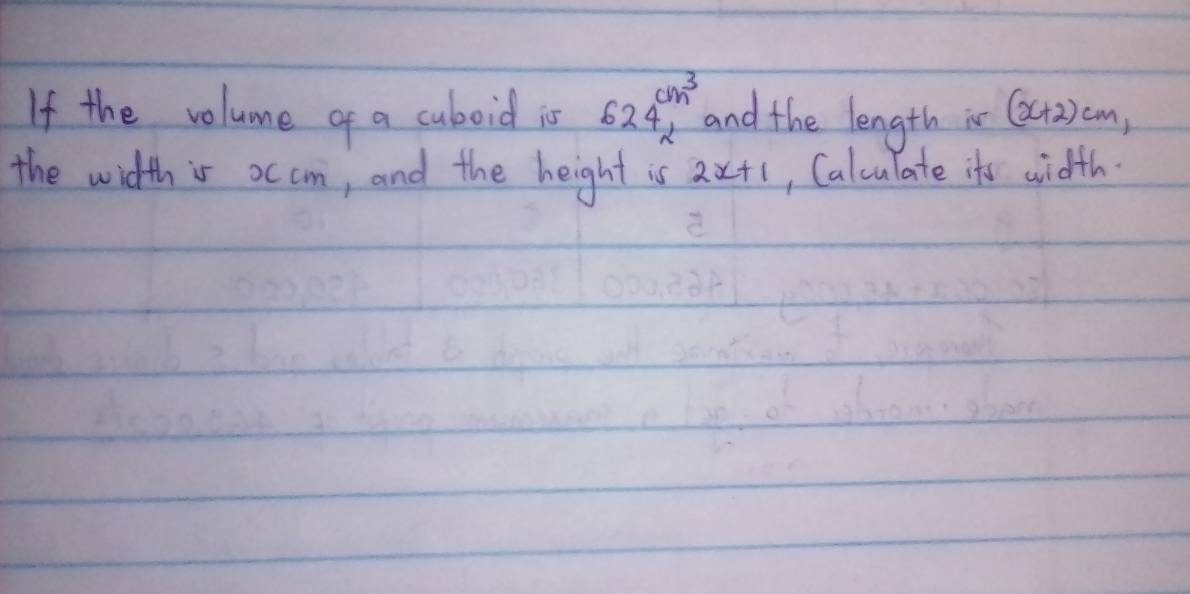 If the volume of a cuboid is 624 cm³, and the length is (x+2)cm,
the width is x cm, and the height is 2x+1, Calculate its width.